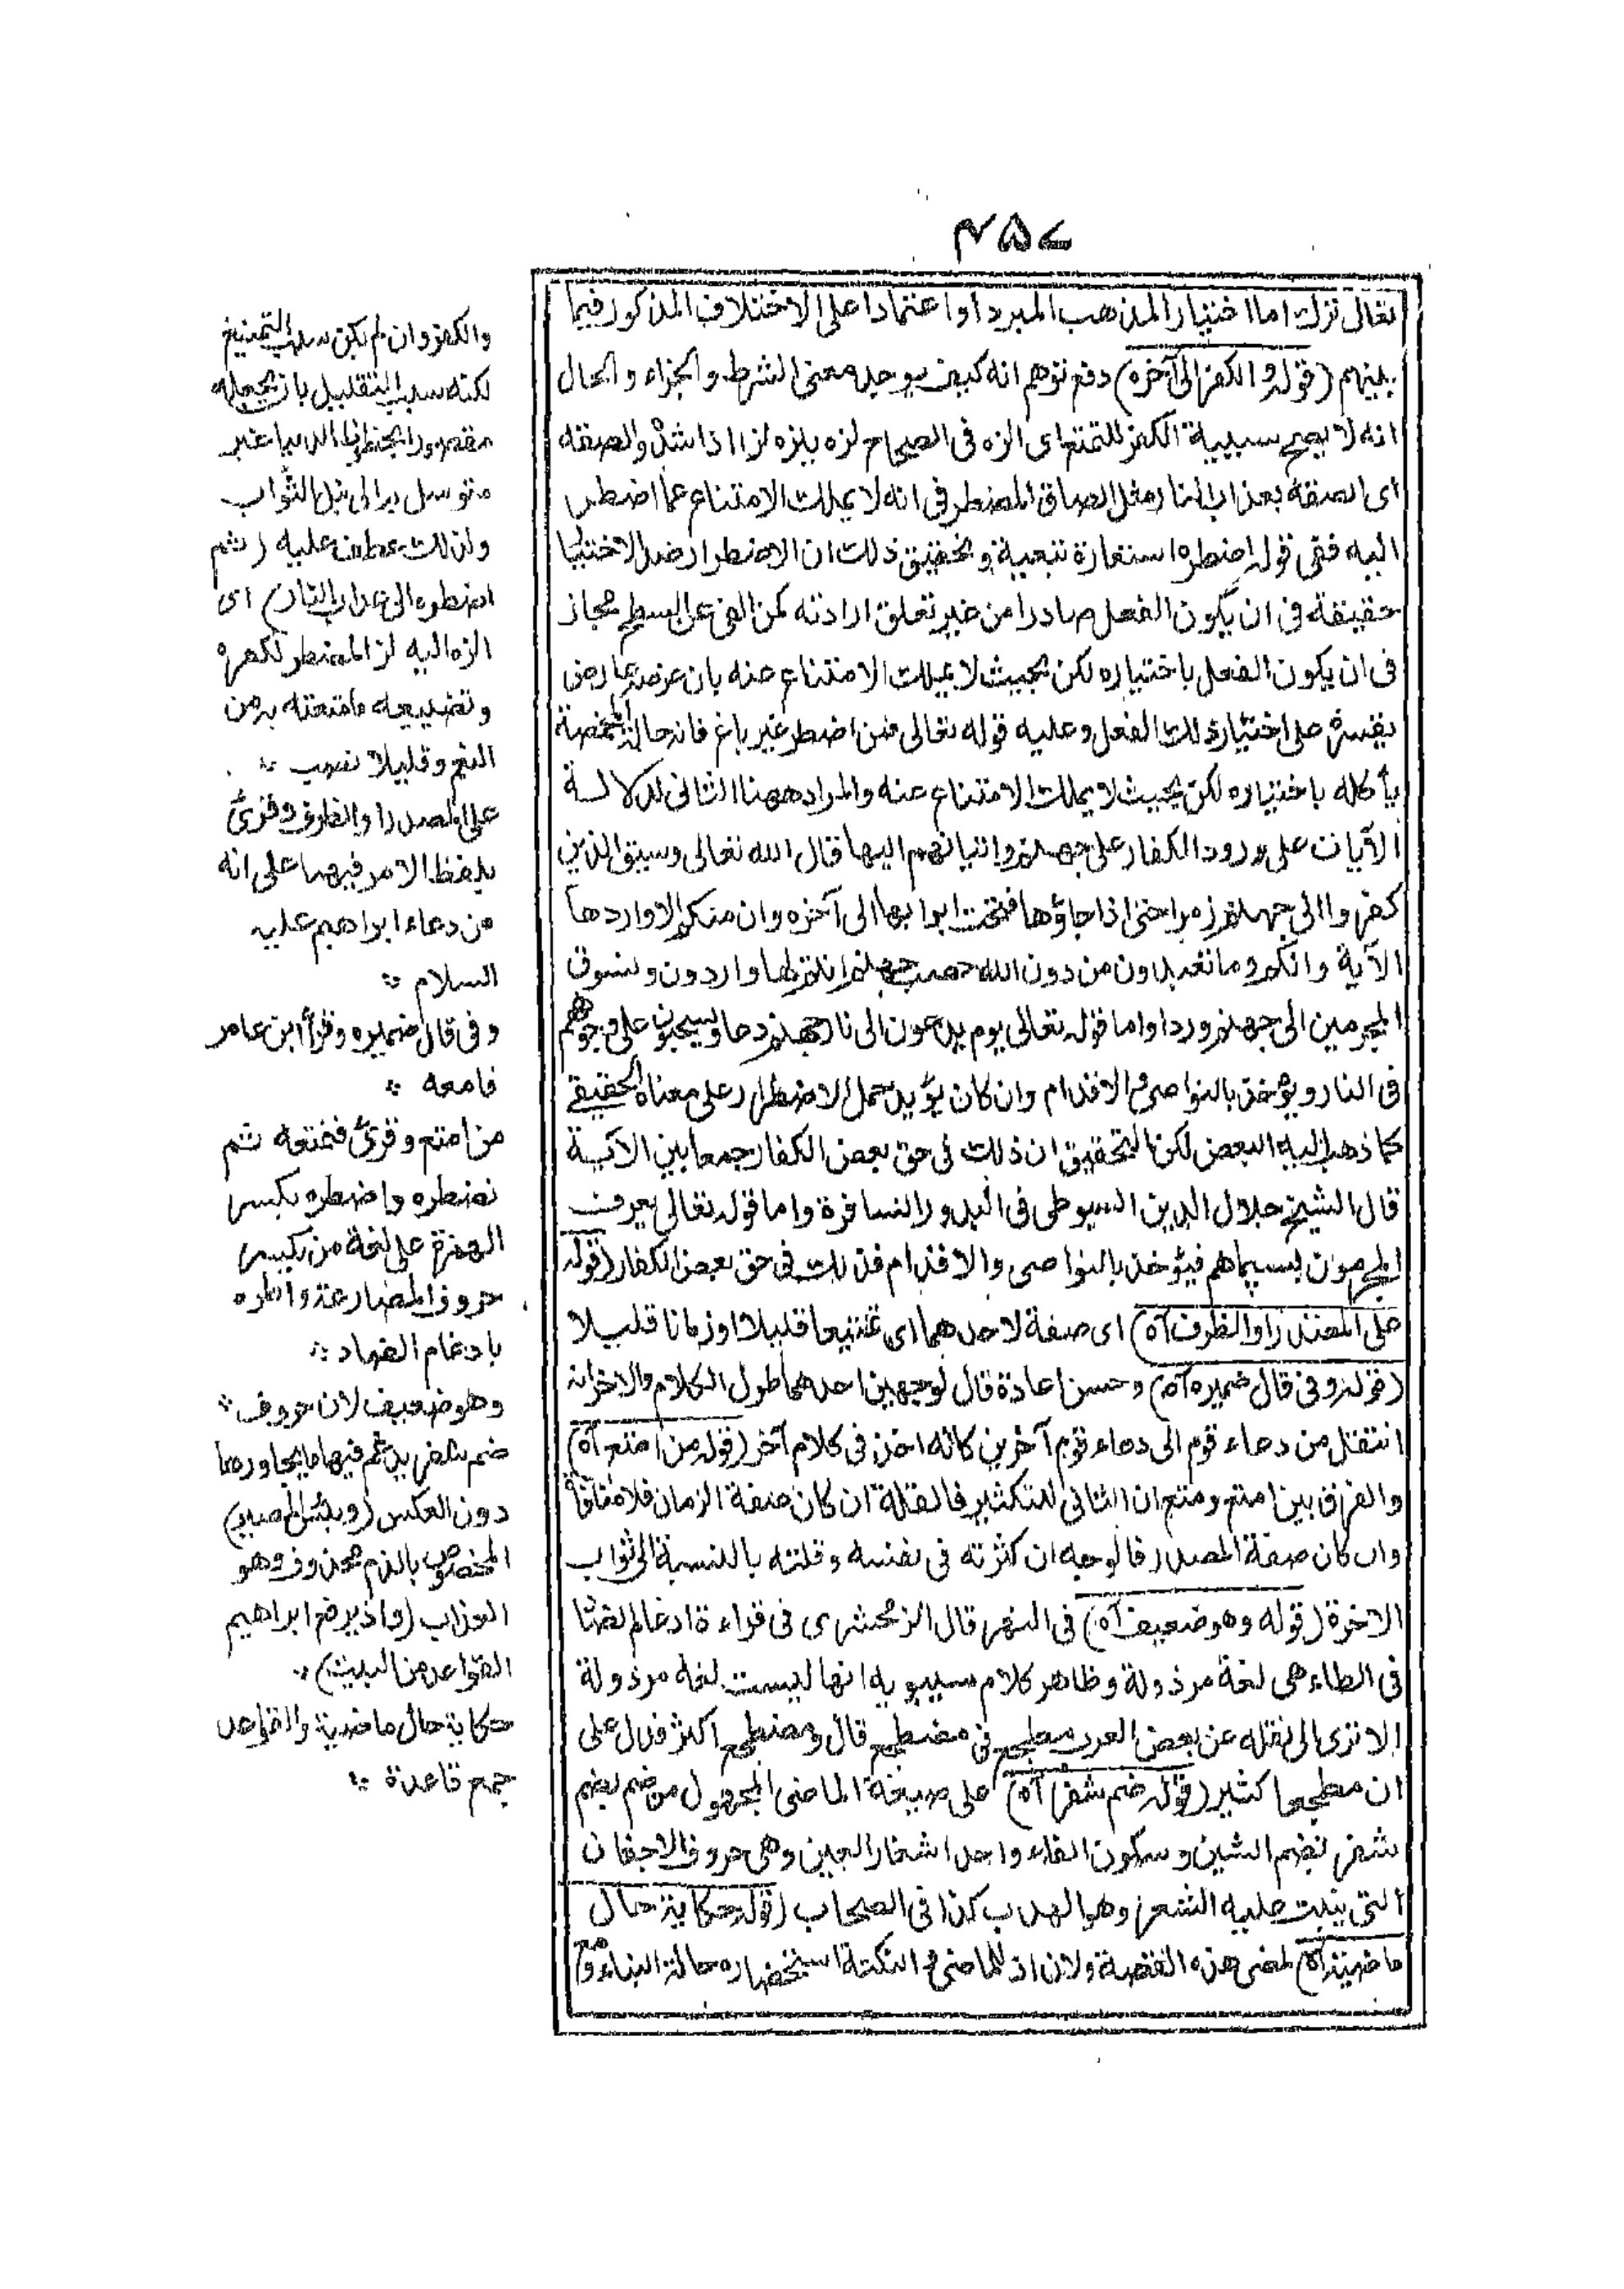 ۴۵۷
تعالى ترك اما اختيارا لمذهب المبرد او اعتمادا على الاختلاف المذكور فيما
بينهم (قوله والكفر الى آخره) دفع توهم انه كيف يوجد معنى الشرط والجزاء والحال
انه لا يصح سببية الكفر للتمتع اى الزه فى الصحاح لزه يلزه لزا اذا شده والصقه
اى الصقه بعذاب النار مثل الصاق المضطر فى انه لا يملك الامتناع عما اضطر
اليه ففى قوله اضطره استعارة تبعية وتحقيق ذلك ان الاضطرار ضد الاختيا
حقيقة فى ان يكون الفعل صادرا من غير تعلق ارادته كمن القى عن السطح مجاز
فى ان يكون الفعل باختياره لكن بحيث لا يملك الامتناع عنه بان عرض له عارض
يقسره على اختيار ذلك الفعل وعليه قوله تعالى فمن اضطر غير باغ فانه حالة المخمصة
يأكله باختياره لكن بحيث لا يملك الامتناع عنه والمراد ههنا الثانى لدلالة
الآيات على ورود الكفار على جهنم واتيانهم اليها قال الله تعالى وسيق الذين
كفروا الى جهنم زمرا حتى اذا جاؤها فتحت ابوابها الى آخره وان منكم الا واردها
الآية وانكم وما تعبدون من دون الله حصب جهنم انتم لها واردون ونسوق
المجرمين الى جهنم وردا واما قوله تعالى يوم يدعون الى نار جهنم دعا ويسحبون على وجوههم
فى النار ويؤخذ بالنواصى والاقدام وان كان يؤيد حمل الاضطرار على معناه الحقيقے
كما ذهب اليه البعض لكن التحقيق ان ذلك فى حق بعض الكفار جمعا بين الآية
قال الشيخ جلال الدين السيوطى فى البدور السافرة واما قوله تعالى يعرف
المجرمون بسيماهم فيؤخذ بالنواصى والاقدام فذلك فى حق بعض الكفار (قوله
على المصدر او الظرف آه) اى صفة لاحدهما اى تمتيعا قليلا او زمانا قليلا
(قوله وفى قال ضميره آه) وحسن اعادة قال لوجهين احدهما طول الكلام والاخر انه
انتقل من دعاء قوم الى دعاء قوم آخرين كانه اخذ فى كلام آخر (قوله من امتع آه)
والفرق بين امتع ومتع ان الثانى للتكثير فالقلة ان كان صفة الزمان فلا منافاة
وان كان صفة المصدر فالوجه ان كثرته فى نفسه وقلته بالنسبة الى ثواب
الاخرة (قوله وهو ضعيف آه) فى النهر قال الزمخشرى فى قراءة ادغام الضا
فى الطاء هى لغة مرذولة وظاهر كلام سيبويه انها ليست لغة مرذولة
الا ترى الى نقله عن بعض العرب مطجع فى مضطجع قال ومضطجع اكثر فدل على
ان مطجعا كثير (قوله ضم شفر آه) على صيغة الماضى المجهول من ضم يضم
شفر بضم الشين وسكون الفاء واحد اشفار العين وهى حروف الاجفان
التى ينبت عليه الشعر وهو الهدب كذا فى الصحاح (قوله حكاية حال
ماضية آه) لمضى هذه القصة ولان اذ للماضى والنكتة استحضاره حالة البناء مع
والكفر وان لم يكن سبب التمتيع
لكنه سبب التقليل بان يجعله
مقصورا بحظوظ الدنيا غير
متوسل به الى نيل الثواب
ولذلك عطف عليه (ثم
اضطره الى عذاب النار) اى
الزه اليه لز المضطر لكفره
وتضييعه ما متعته به من
النعم وقليلا نصب ؞
على المصدر او الظرف وقرئ
بلفظ الامر فيهما على انه
من دعاء ابراهيم عليه
السلام ؞
وفى قال ضميره وقرأ ابن عامر
فامتعه ؞
من امتع وقرئ فنمتعه ثم
نضطره واضطره بكسر
الهمزة على لغة من يكسر
حروف المضارعة واطره
بادغام الضاد ؞
وهو ضعيف لان حروف ؞
ضم شفر يدغم فيها ما يجاورها
دون العكس (وبئس المصير)
المخصوص بالذم محذوف وهو
العذاب (واذ يرفع ابراهيم
القواعد من البيت) ؞
حكاية حال ماضية والقواعد
جمع قاعدة ؞